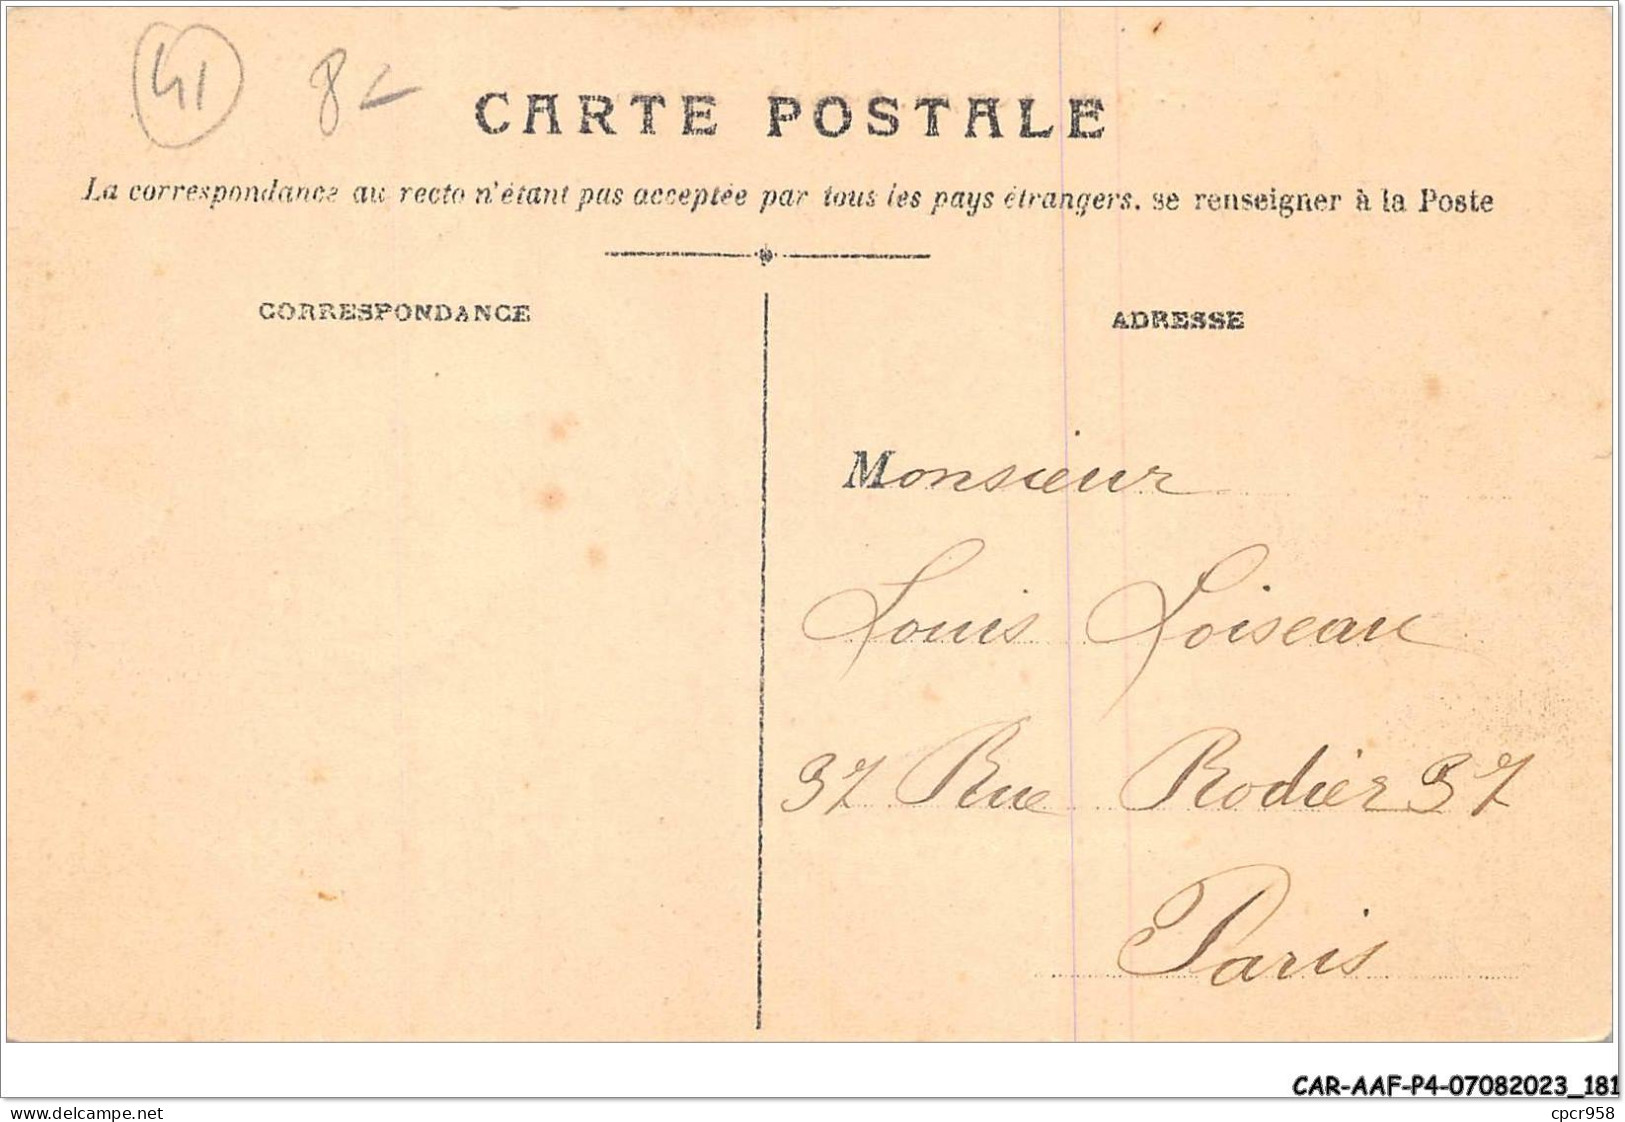 41 8
CARTE POSTALE
La correspondance au recto n'étant pas acceptée par tous les pays étrangers, se renseigner à la Poste
CORRESPONDANCE
ADRESSE
Monsieur
Louis Loiseau
37 Rue Rodier 37
Paris
CAR-AAF-P4-07082023_181
www.delcampe.net
cpcr958